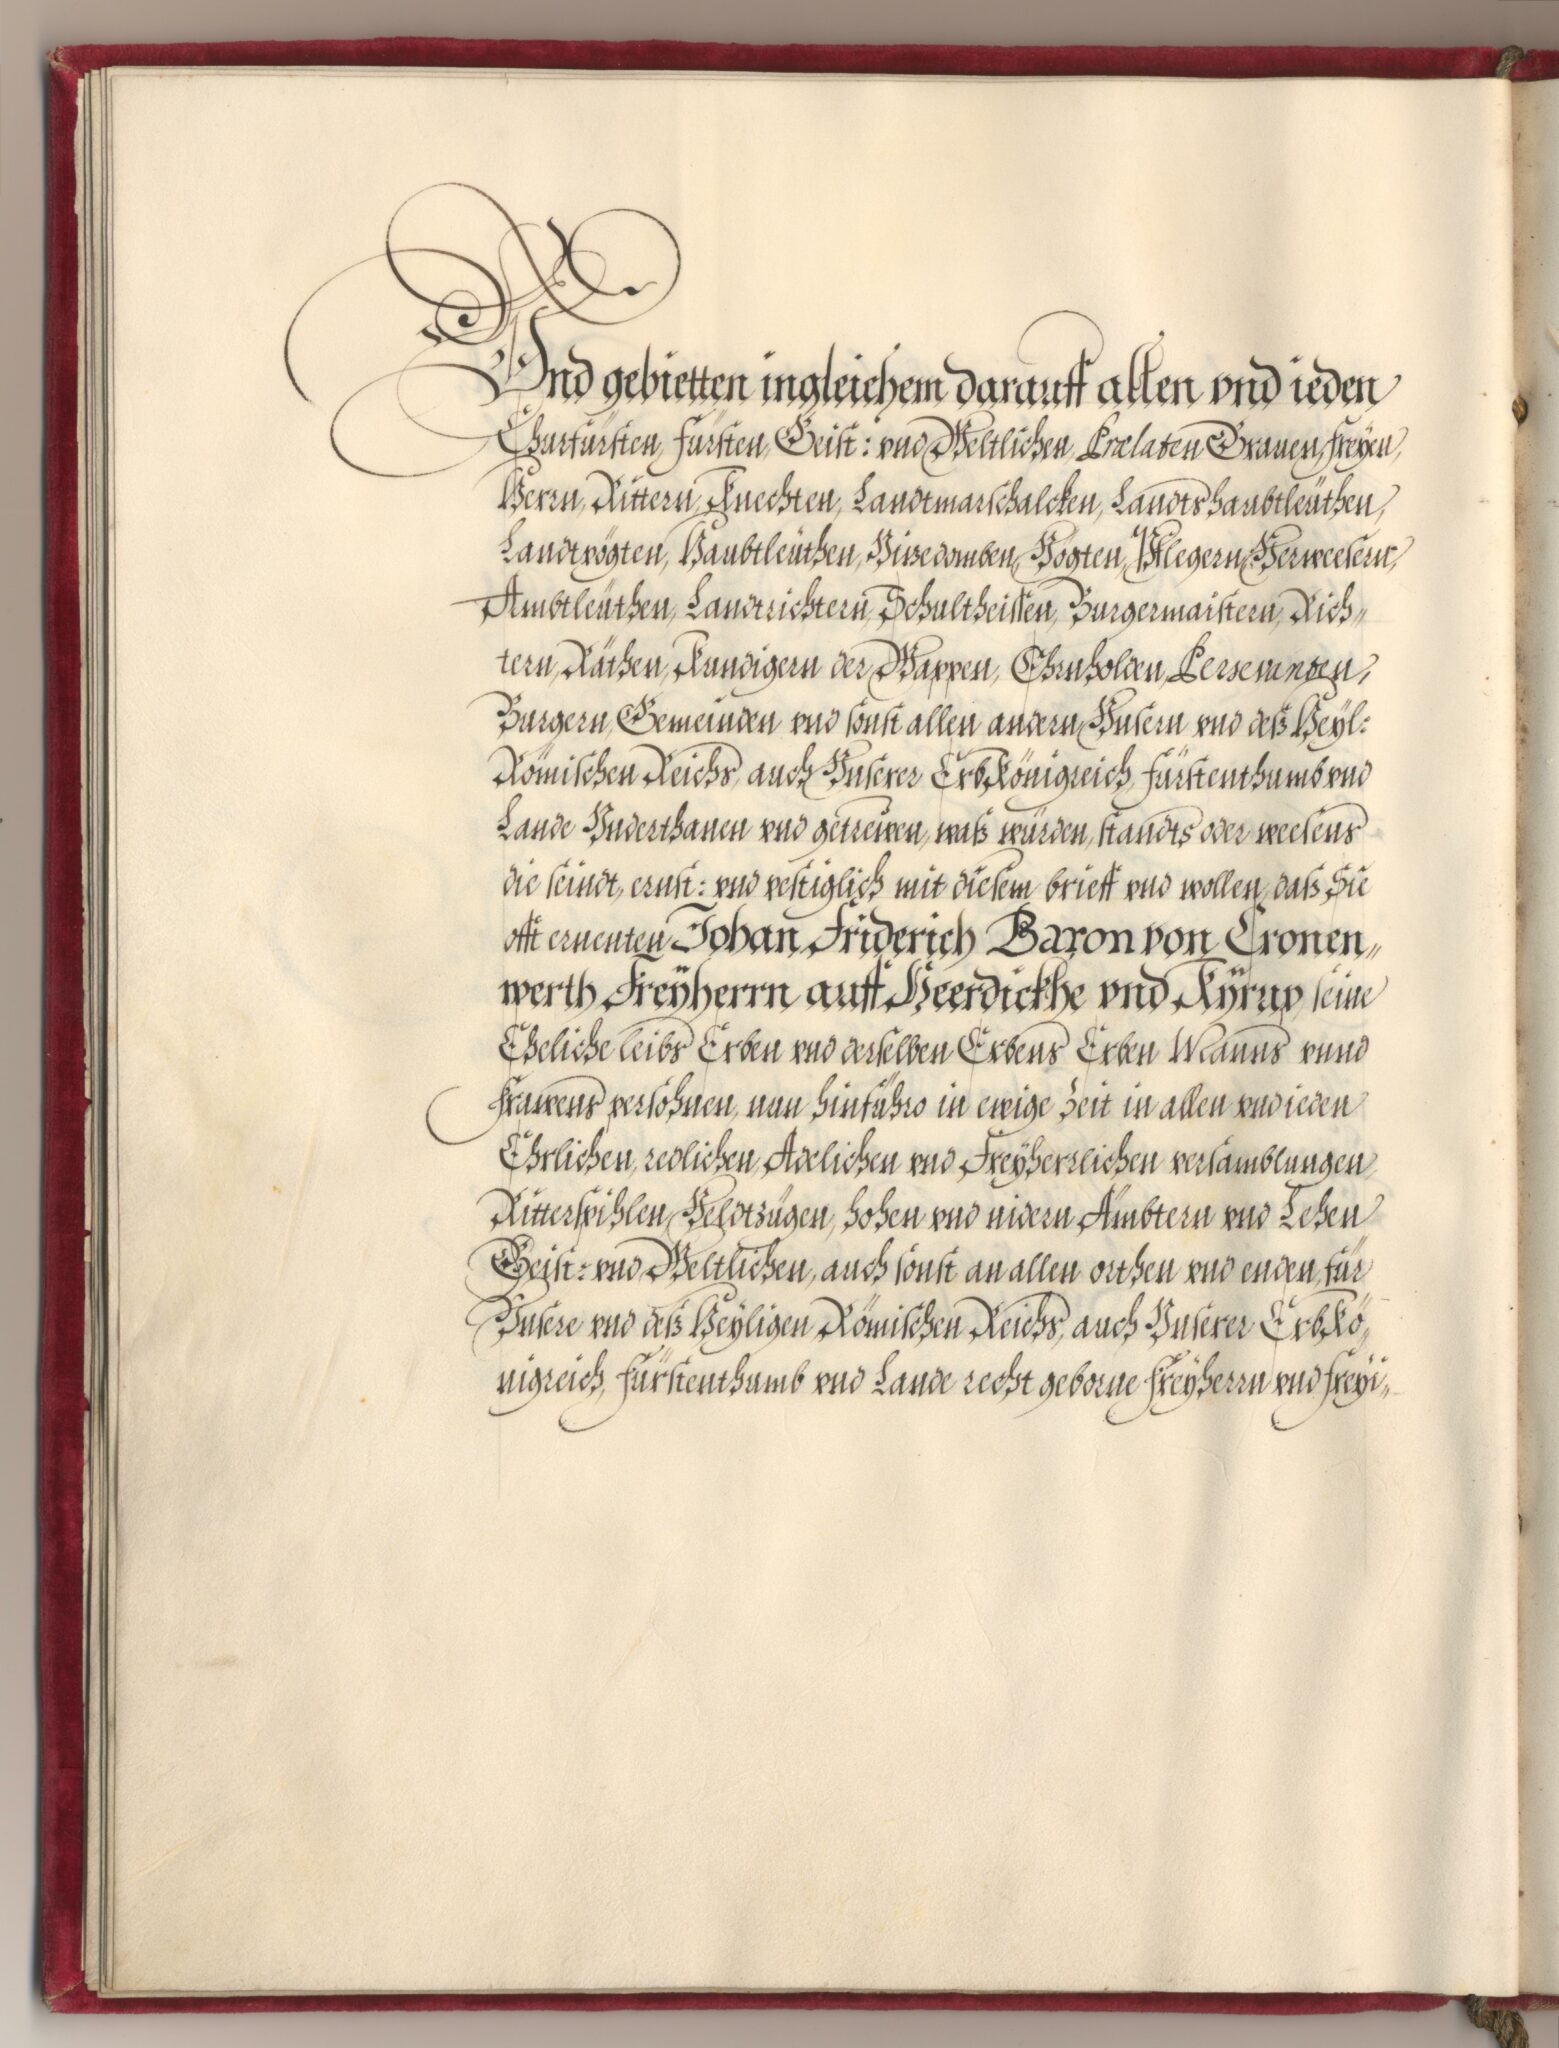 Vnd gebietten ingleichem darauff allen vnd ieden
Churfürsten, Fürsten, Geist: vnd Weltlichen, Prælaten, Grauen, Freyen,
Herrn, Rittern, Knechten, Landtmarschalcken, Landtshaubtleüthen,
Landtvögten, Haubtleüthen, Vizedomben, Vögten, Pflegern, Verweesern,
Ambtleüthen, Landtrichtern, Schultheissen, Burgermaistern, Rich„
tern, Räthen, Kundigern der Wappen, Ehrnholden, Persevanden,
Burgern, Gemeinden vnd sonst allen andern, Vnsern vnd deß Heyl:
Römischen Reichs, auch Vnserer Erbkönigreich, Fürstenthumb vnd
Lande Vnderthanen vnd getrewen, waß würden, standts oder weesens
die seindt, ernst: vnd vestiglich mit diesem brieff vnd wollen, daß Sie
offt ernenten Johan Friderich Baron von Cronen„
werth Freyherrn auff Heerdickhe vnd Kÿrup, seine
Eheliche leibs Erben vnd derselben Erbens Erben Manns vnnd
Frawens persohnen, nun hinführo in ewige Zeit in allen vnd ieden
Ehrlichen, redlichen, Adelichen vnd Freyherrlichen versamblungen,
Ritterspihlen, Veldtzügen, hohen vnd nidern Ämbtern vnd Lehen
Geist: vnd Weltlichen, auch sonst an allen orthen vnd enden, für
Vnsere vnd deß Heyligen Römischen Reichs, auch Vnserer Erbkö„
nigreich, Fürstenthumb vnd Lande recht geborne Freyherrn vnd Freyi„